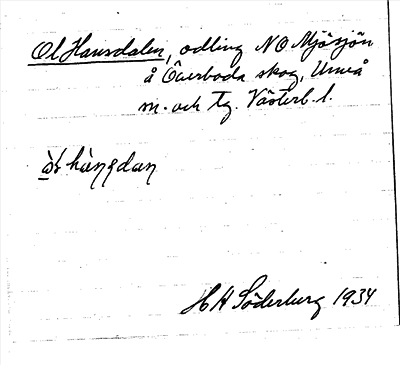 Ol Hansdalen, odling NO Mjösjön
å Överboda skog, Umeå
m. och tg. Västerb. l.
H H Söderburg 1934